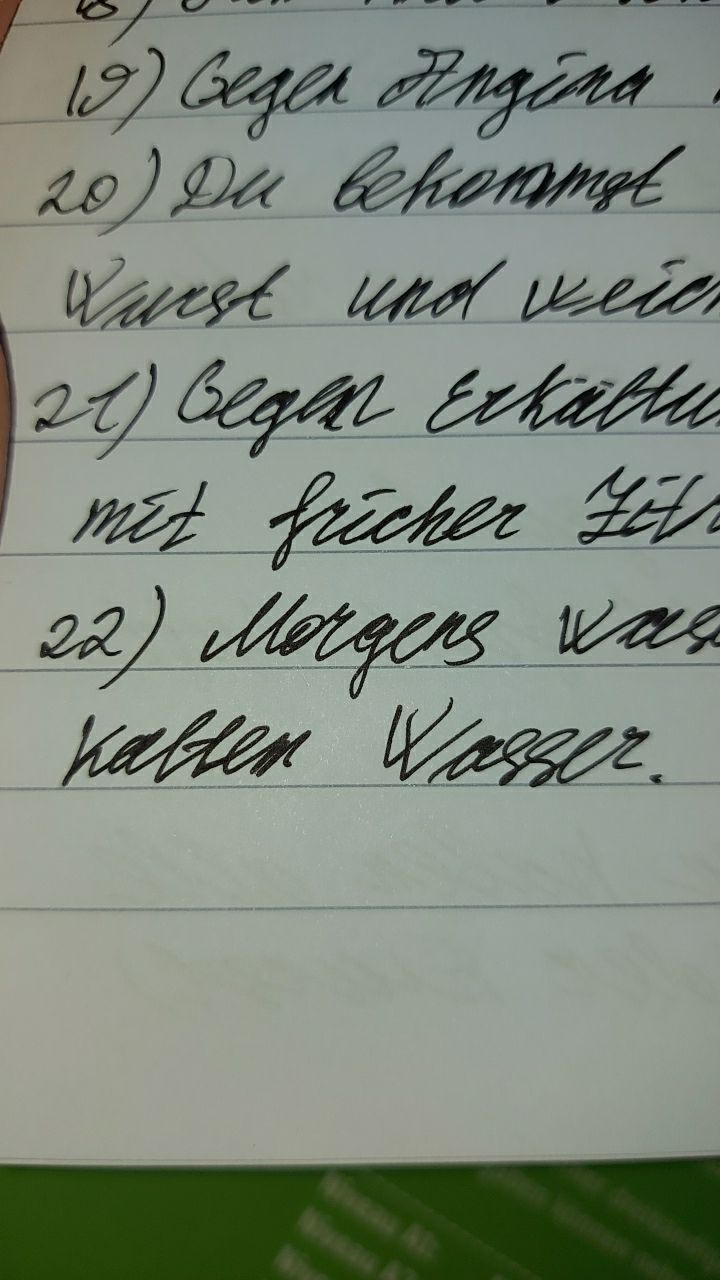 19) Gegen Angina
20) Du bekommst
Wurst und weich
21) Gegen Erkältu
mit fricher Zit
22) Morgens was
kalten Wasser.